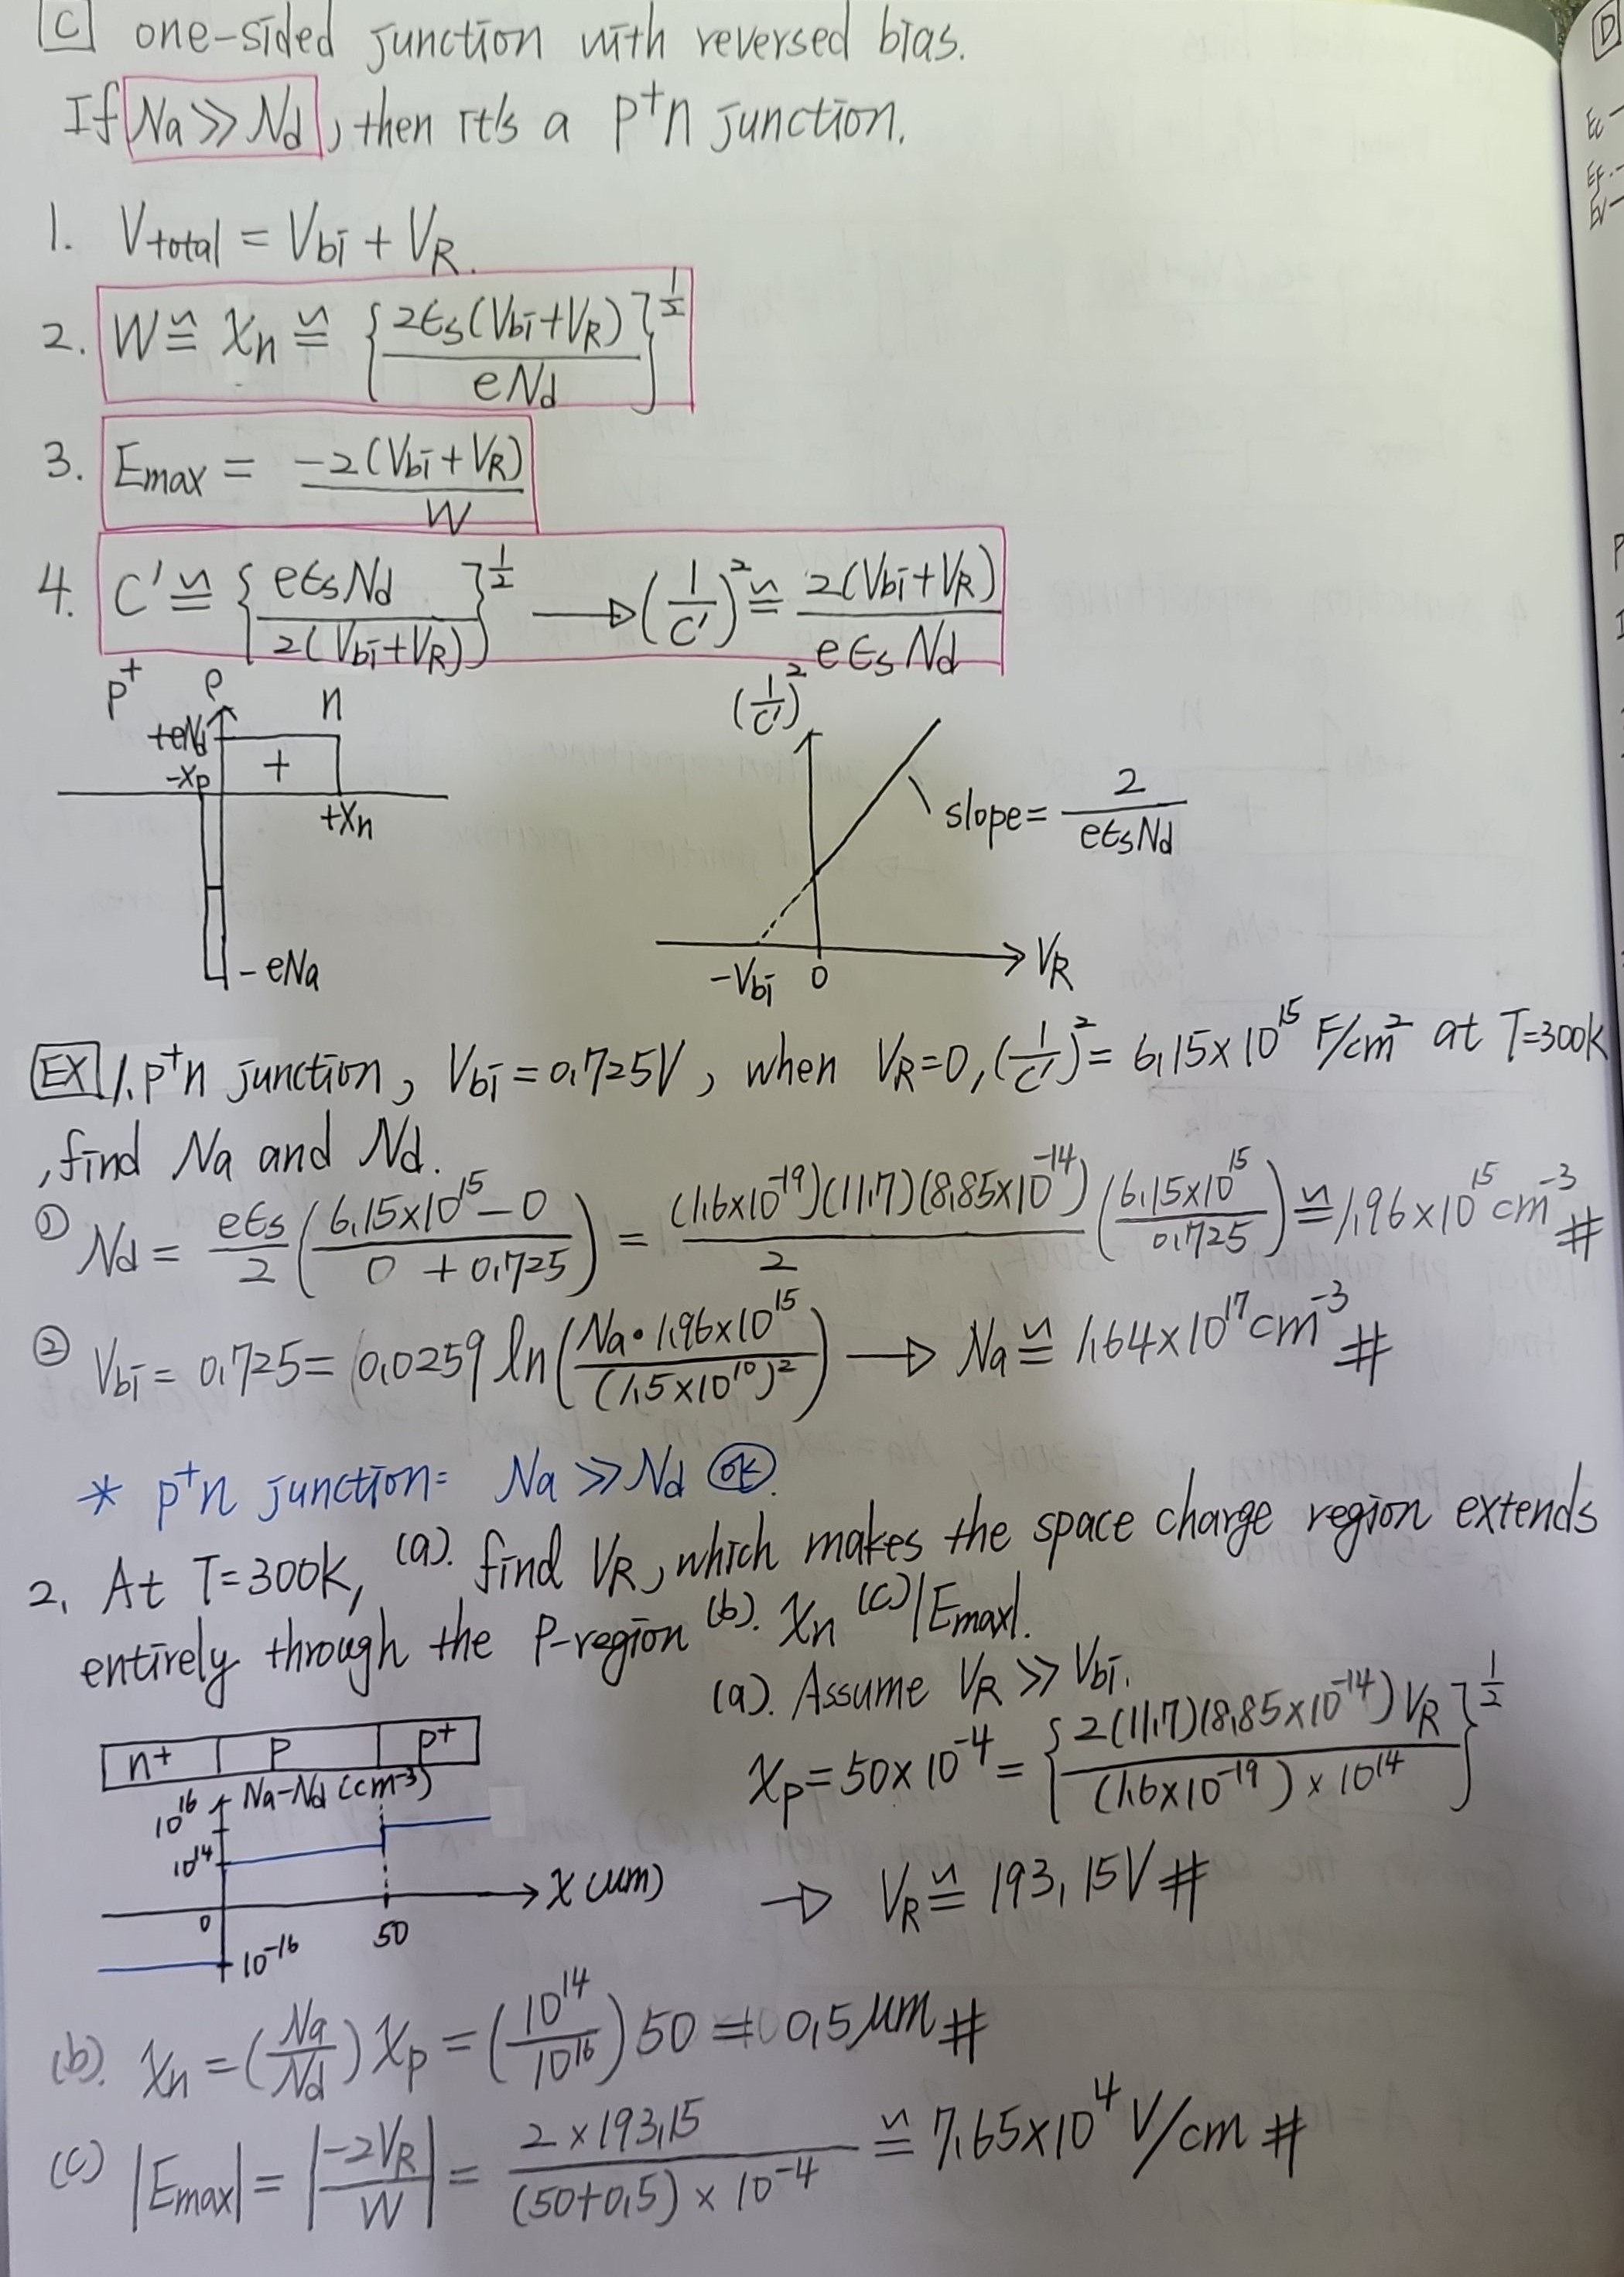 [C] one-sided junction with reversed bias.
If Na ≫ Nd, then it's a p⁺n junction.
1. Vtotal = Vbi + VR.
2. W ≌ xn ≌ {2ϵs(Vbi+VR) / eNd}^(1/2)
3. Emax = -2(Vbi+VR) / W
4. C' ≌ {eϵsNd / 2(Vbi+VR)}^(1/2) → (1/C')² ≌ 2(Vbi+VR) / eϵsNd
p⁺ ρ n
+eNd
+
-xp
+xn
-eNa
(1/C')²
slope = 2 / eϵsNd
-Vbi 0 VR
[EX] 1. p⁺n junction, Vbi = 0.725V, when VR=0, (1/C')² = 6.15×10¹⁵ F/cm² at T=300k
, find Na and Nd.
① Nd = eϵs/2 (6.15×10¹⁵ - 0 / 0 + 0.725) = (1.6×10⁻¹⁹)(11.7)(8.85×10⁻¹⁴) / 2 (6.15×10¹⁵ / 0.725) ≌ 1.96×10¹⁵ cm⁻³ #
② Vbi = 0.725 = (0.0259 ln(Na•1.96×10¹⁵ / (1.5×10¹⁰)²) → Na ≌ 1.64×10¹⁷ cm⁻³ #
* p⁺n junction = Na ≫ Nd OK.
2. At T=300k, (a). find VR, which makes the space charge region extends
entirely through the P-region (b). xn (c) |Emax|.
(a). Assume VR ≫ Vbi.
xp = 50×10⁻⁴ = {2(11.7)(8.85×10⁻¹⁴)VR / (1.6×10⁻¹⁹)×10¹⁴}^(1/2)
→ VR ≌ 193.15V #
n+ P P+
Na-Nd (cm⁻³)
10¹⁶
10¹⁴
X (um)
0 50
10⁻¹⁶
(b). xn = (Na/Nd) xp = (10¹⁴/10¹⁶) 50 = 0.5 μm #
(c) |Emax| = |-2VR / W| = 2×193.15 / (50+0.5)×10⁻⁴ ≌ 7.65×10⁴ V/cm #
[D]
Ec
EF
EV